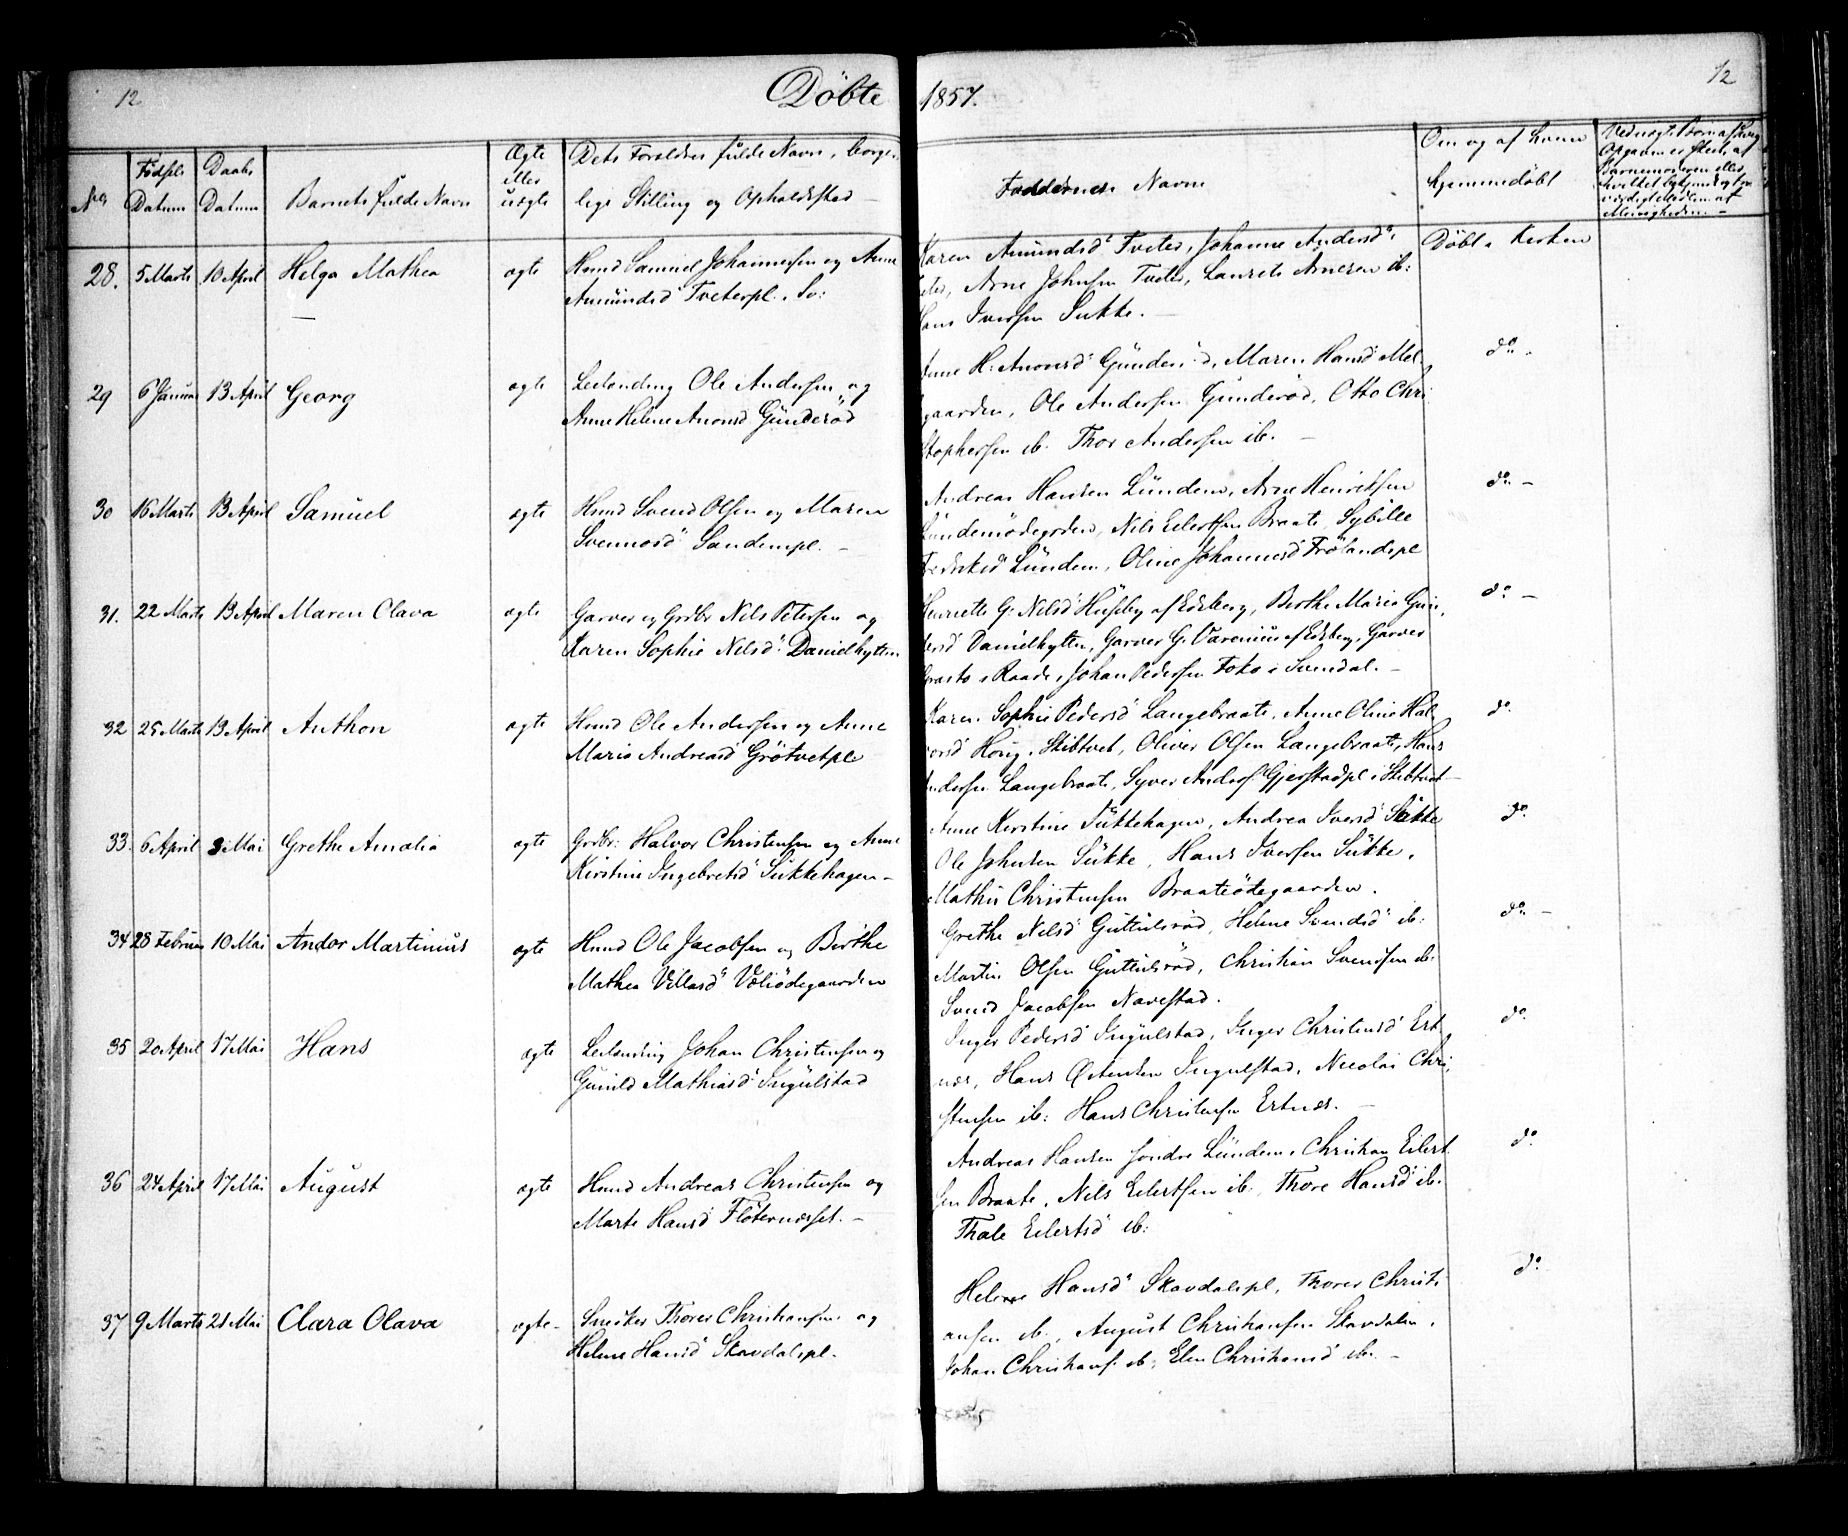 12
Döbte 1857.
12
No
Födsels Datum
Daabs Datum
Barnets fulde Navn
Ægte eller uægte
Dets Forældres fulde Navn, borgerlige Stilling og Opholdsted
Faddernes Navne
Om og af hvem hjemmedöbt
28. 5 Marts 10 April Helga Mathea ægte Huusmd Samuel Johannesen og Anne
Amundsd Tveterpl.
Karen Amundsd Tveter, Johanne Andersd
Arne Johnsen Tveter, Laurets Arnesen ib:
Hans Iversen Sukke. –
Döbt i Kirken
29 6 Januar 13 April Georg ægte Leilending Ole Andersen og
Anne Helene Amonsd Gunderöd
Anne H: Amonsd Gunderöd, Maren Hansd
gaarden, Ole Andersen Gunderöd, Otto Chri
stophersen ib. Thor Andersen ib. –
do.
30 16 Marts 13 April Samuel ægte Huusmd Svend Olsen og Maren
Svennesd Sandempl. –
Andreas Hansen Lundem, Arne Henriksen
Lundemödegrden, Nils Eilertsen Braate, Sybille
Lundem, Oline Johannesd Frölandspl
do. –
31. 22 Marts 13 April Maren Olava ægte Garver og Grdbr Nils Petersen og
Karen Sophie Nilsd Danielhytten
Henriette G: Nilsd Huseby af Edsberg, Berthe Marie Gun
Danielhytten, Garver G. Varenius af Edsberg, Garver
i Raade, Johan Pedersen Foko i Svendal. –
do. –
32 25 Marts 13 April Anthon ægte Huusmd Ole Andersen og Anne
Marie Andreasd Grötvetpl
Karen Sophie Pedersd Langebraate, Anne Oline Hal
vorsd Houg i Skibtvet, Oliver Olsen Langebraate, Hans
Andersen Langebraate, Syver Anders. Gjerstadpl i Skibtvet –
do.
33. 6 April 3 Mai Grethe Amalia ægte Grdbr: Halvor Christensen og Anne
Kirstine Ingebretsd Sukkehagen –
Anne Kirstine Sukkehagen, Andrea Iversd Sukke
Ole Johnsen Sukke, Hans Iversen Sukke,
Mathis Christensen Braateödegaarden.
do.
34 28 Februar 10 Mai Andor Martinius ægte Huusmd Ole Jacobsen og Berthe
Mathea Villasd Voliödegaarden
Grethe Nilsd Guttulsröd, Helene Svendsd ib:
Martin Olsen Guttulsröd, Christian Svendsen ib:
Svend Jacobsen Navestad.
do. –
35 20 April 17 Mai Hans ægte Leilending Johan Christensen og
Gunild Mathiasd Ingulstad
Inger Pedersd Ingulstad, Inger Christensd Ert
næs, Hans Ingulstad, Nicolai Chri
stensen ib: Hans Christensen Ertnæs. –
do.
36 24 April 17 Mai August ægte Huusmd Andreas Christensen og
Marte Hansd Flöternæsset. –
Andreas Hansen söndre Lundem, Christian Eilert
sen Braate, Nils Eilertsen ib:, Thore Hansd ib.
Thale Eilertsd ib:
do.
37 9 Marts 21 Mai Clara Olava ægte – Snedker Thorer Christiansen og
Helene Hansd Skavdalspl.
Helene Hansd Skavdalspl, Thorer Christi
ansen ib., August Christiansen Skavdalen,
Johan Christians. ib, Elen Christiansd ib. –
do.